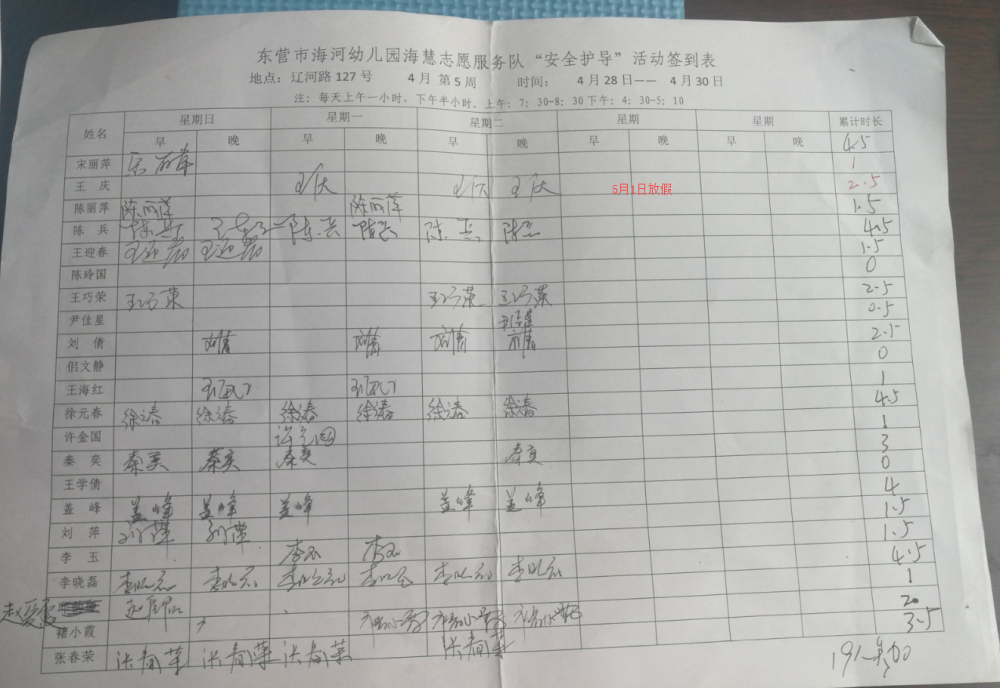 东营市海河幼儿园海慧志愿服务队“安全护导”活动签到表
地点：辽河路 127 号 4 月 第 5 周 时间： 4 月 28 日—— 4 月 30 日
注：每天上午一小时，下午半小时。上午：7：30-8：30 下午：4：30-5：10
姓名 星期日 星期一 星期二 星期 星期 累计时长
早 晚 早 晚 早 晚 4.5
宋丽萍 宋丽萍 1
王 庆 王庆 王庆 王庆 5月1日放假 2.5
陈丽萍 陈丽萍 陈丽萍 1.5
陈 兵 陈兵 陈兵 陈兵 陈兵 陈兵 4.5
王迎春 王迎春 王迎春 1.5
陈玲国 0
王巧荣 王巧荣 王巧荣 王巧荣 2.5
尹佳星 尹佳星 0.5
刘 倩 刘倩 刘倩 刘倩 刘倩 2.5
侣文静 0
王海红 王海红 王海红 1
徐元春 徐元春 徐元春 徐元春 徐元春 徐元春 徐元春 4.5
许金国 许金国 1
秦 奕 秦奕 秦奕 秦奕 秦奕 3
王学倩 0
盖 峰 盖峰 盖峰 盖峰 盖峰 盖峰 4
刘 萍 刘萍 刘萍 1.5
李 玉 李玉 李玉 1.5
李晓磊 李晓磊 李晓磊 李晓磊 李晓磊 李晓磊 李晓磊 4.5
1
褚小霞 褚小霞 褚小霞 褚小霞 20
张春荣 张春荣 张春荣 张春荣 张春荣 3.5